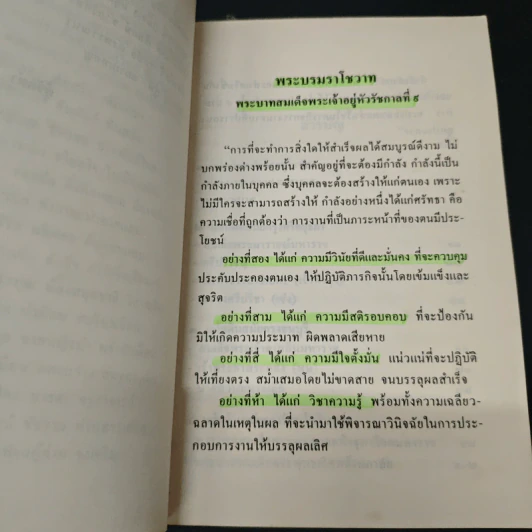 พระบรมราโชวาท
พระบาทสมเด็จพระเจ้าอยู่หัวรัชกาลที่ ๙
“การที่จะทำการสิ่งใดให้สำเร็จผลได้สมบูรณ์ดีงาม ไม่
บกพร่องด่างพร้อยนั้น สำคัญอยู่ที่จะต้องมีกำลัง กำลังนี้เป็น
กำลังภายในบุคคล ซึ่งบุคคลจะต้องสร้างให้แก่ตนเอง เพราะ
ไม่มีใครจะสามารถสร้างให้ กำลังอย่างหนึ่งได้แก่ศรัทธา คือ
ความเชื่อที่ถูกต้องว่า การงานที่เป็นภาระหน้าที่ของตนมีประ-
โยชน์
อย่างที่สอง ได้แก่ ความมีวินัยที่ดีและมั่นคง ที่จะควบคุม
ประคับประคองตนเอง ให้ปฏิบัติภารกิจนั้นโดยเข้มแข็งและ
สุจริต
อย่างที่สาม ได้แก่ ความมีสติรอบคอบ ที่จะป้องกัน
มิให้เกิดความประมาท ผิดพลาดเสียหาย
อย่างที่สี่ ได้แก่ ความมีใจตั้งมั่น แน่วแน่ที่จะปฏิบัติ
ให้เที่ยงตรง สม่ำเสมอโดยไม่ขาดสาย จนบรรลุผลสำเร็จ
อย่างที่ห้า ได้แก่ วิชาความรู้ พร้อมทั้งความเฉลียว-
ฉลาดในเหตุในผล ที่จะนำมาใช้พิจารณาวินิจฉัยในการประ-
กอบการงานให้บรรลุผลเลิศ